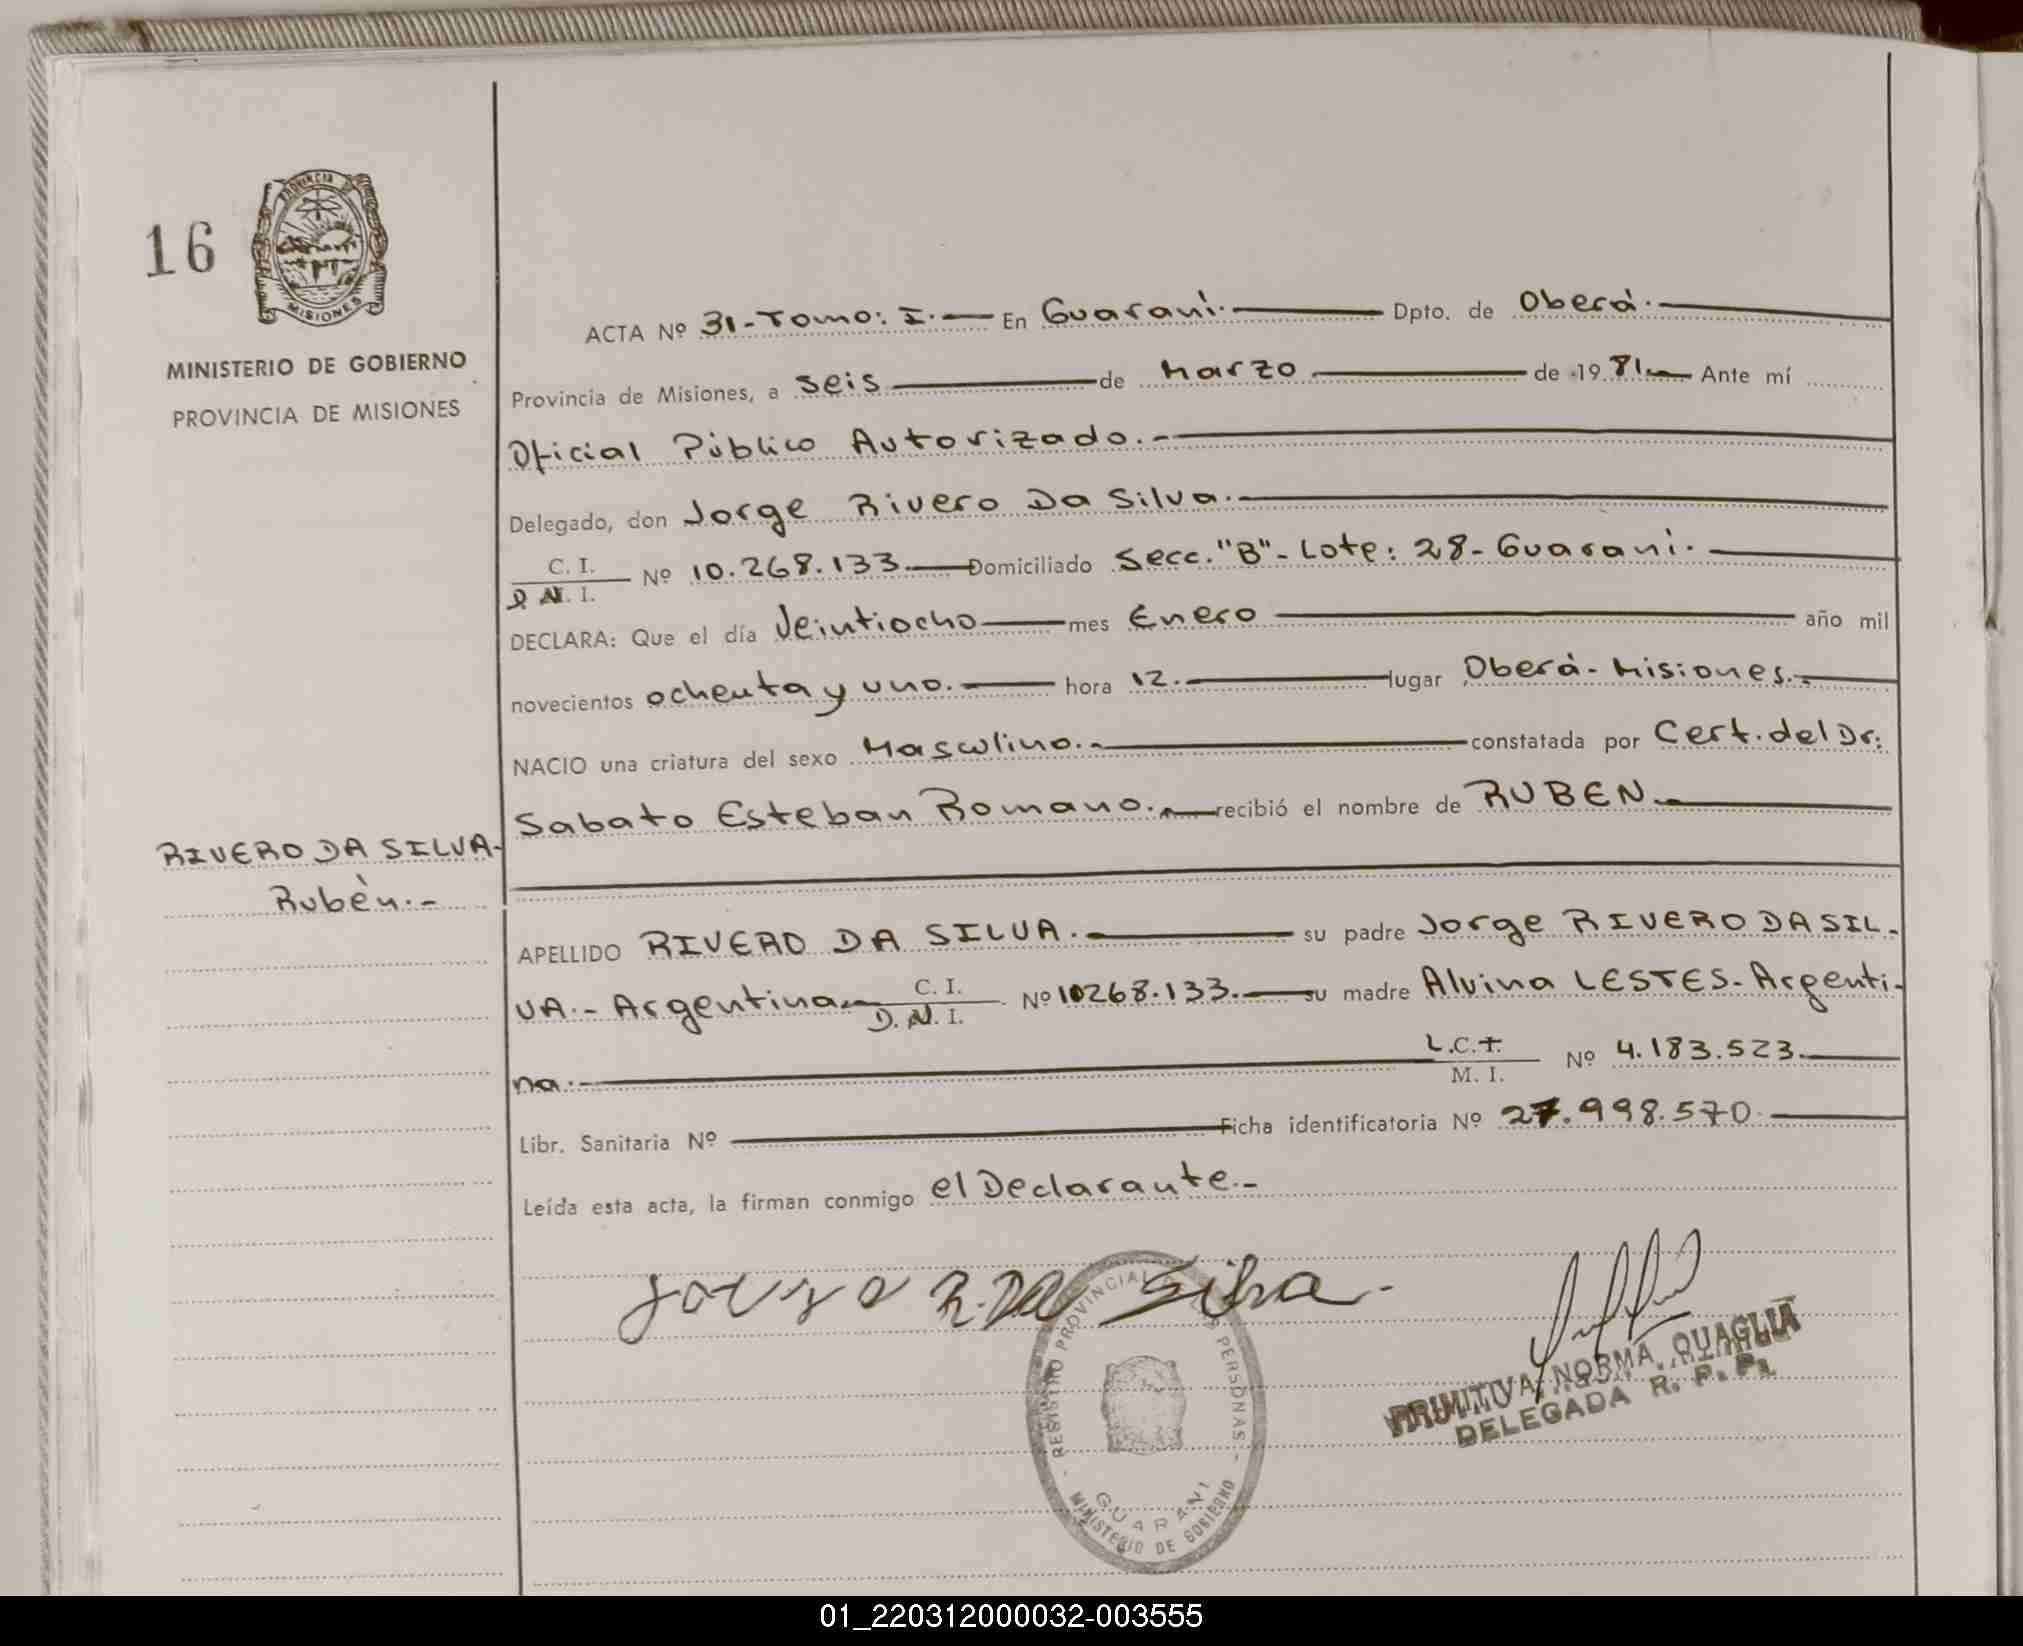 16
PROVINCIA DE
MISIONES
MINISTERIO DE GOBIERNO
PROVINCIA DE MISIONES
ACTA Nº 31-Tomo: I.- En Guaraní.- Dpto. de Oberá.-
Provincia de Misiones, a seis de Marzo de 1981.- Ante mí
Oficial Público Autorizado.-
Delegado, don Jorge Rivero Da Silva.-
C. I.
D N. I. Nº 10.268.133.- Domiciliado Secc. "B"- Lote: 28- Guaraní.-
DECLARA: Que el día Veintiocho mes Enero año mil
novecientos ochenta y uno.- hora 12.- lugar Oberá- Misiones.-
NACIO una criatura del sexo Masculino.- constatada por Cert. del Dr:
Sabato Esteban Romano.- recibió el nombre de RUBEN.-
RIVERO DA SILVA-
Rubén.-
APELLIDO RIVERO DA SILVA.- su padre Jorge RIVERO DA SIL-
VA.- Argentina.- C. I.
D. N. I. Nº 10268.133.- su madre Alvina LESTES- Argenti-
na.- L.C.I.
M. I. Nº 4.183.523.-
Libr. Sanitaria Nº Ficha identificatoria Nº 27.998.570.-
Leída esta acta, la firman conmigo el Declarante.-
R. Da Silva.-
REGISTRO PROVINCIAL PERSONAS -
GUARANI
MINISTERIO DE GOBIERNO
PRIMITIVA NORMA QUAGLIA
DELEGADA R. P. P.
01_220312000032-003555